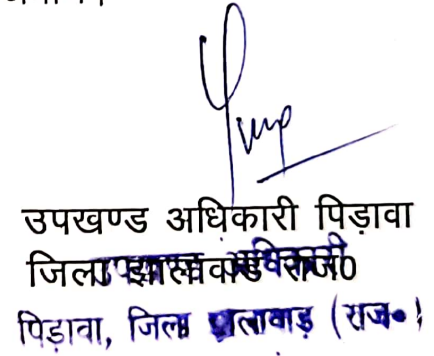 उपखण्ड अधिकारी पिड़ावा
जिला झालावाड राज0
उपखण्ड अधिकारी
पिड़ावा, जिला झालावाड़ (राज०)